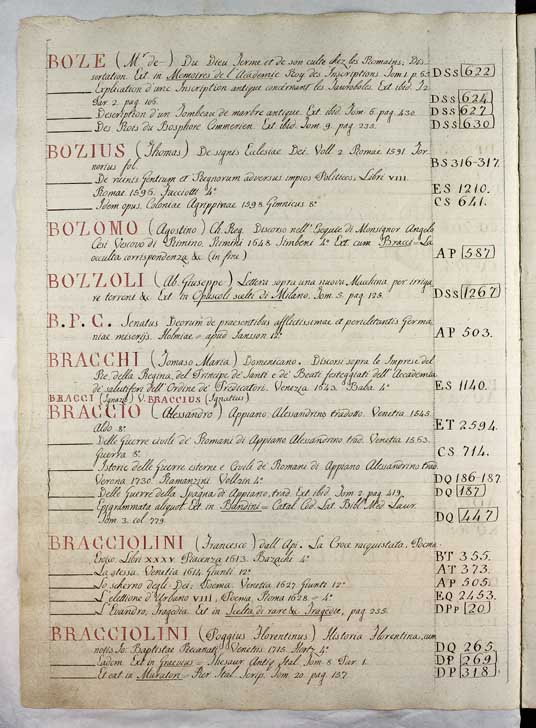 BOZE (Mr. de-) Du Dieu Terme et de son culte chez les Romains; Dis-
sertation. Ext. in Memoires de l'Academie Roy. des Inscriptions Tom. 1. p. 65. DSS 622
Explication d'une Inscription antique concernant les Tauroboles. Ext. ibid. T. 2.
Par. 2. pag. 106. DSS 624
Description d'un Tombeau de marbre antique. Ext. ibid. Tom. 6. pag. 430. DSS 627
Des Rois du Bosphore Cimmerien. Ext. ibid. Tom. 9. pag. 235. DSS 630
BOZIUS (Thomas) De signis Ecclesiae Dei. Voll. 2. Romae. 1591. Tor-
norius fol. BS 316-317.
De ruinis Gentium et Regnorum adversus impios Politicos, Libri VIII.
Romae. 1596. Facciotti 4° ES 1210.
Idem opus. Coloniae Agrippinae 1598. Gimnicus 8° CS 641.
BOZOMO (Agostino) Ch. Reg. Discorso nell'Esequie di Monsignor Angelo
Cesi Vescovo di Rimino. Rimini 1648. Simbeni 4° Ext. cum Bracci = La
occulta corrispondenza & (in fine) AP 587
BOZZOLI (Ab. Giuseppe) Lettera sopra una nuova Macchina per irriga-
re terreni & Ext. in Opuscoli scelti di Milano. Tom. 5. pag. 128. DSS 1267
B. P. C. Senatus Deorum de praesentibus afflictissimae et periclitantis Germa-
niae miserijs. Holmiae = apud Jansson 12° AP 503.
BRACCHI (Tomaso Maria) Domenicano. Discorsi sopra le Imprese del
Re, della Regina, del Principe de' Santi e de' Beati festeggiati dell'Accademia
de' salutiferi dell'Ordine de' Predicatori. Venezia 1643. Baba 4° ES 1140.
BRACCI (Ignazio) V. BRACCIUS (Ignatius)
BRACCIO (Alessandro) Appiano Alessandrino tradotto. Venetia 1545.
Aldo 8° ET 2594.
Delle Guerre civili de' Romani di Appiano Alessandrino trad. Venetia 1563.
Guerra 8° CS 714.
Istorie delle Guerre esterne e Civili de' Romani di Appiano Alessandrino trad.
Verona 1730. Ramanzini Voll. 2 in 4° DQ 186-187.
Delle Guerre della Spagna di Appiano, trad. Ext. ibid. Tom. 2. pag. 419. DQ 187
Epigrammata aliquot. Ext. in Bandini = Catal. Cod. Lat. Bibl. Med. Laur.
Tom. 3. col. 779. DQ 447
BRACCIOLINI (Francesco) dall'Api. La Croce racquistata. Poema
Eroico. Libri XXXV. Piacenza 1613. Bazachi 4° BT 355.
La stessa. Venetia 1614. Giunti. 12° AT 373.
Lo scherno degli Dei. Poema. Venetia 1627. Giunti 12° AP 505.
L'elettione d'Urbano VIII, Poema, Roma 1628 = 4° EQ 2453.
L'Evandro, Tragedia. Ext. in Scelta di rare & Tragedie, pag. 235. DPp 20
BRACCIOLINI (Poggius Florentinus) Historia Florentina, cum
notis Jo: Baptistae Recanati. Venetiis 1715. Hertz 4° DQ 265.
Eadem. Ext. in Graevius = Thesaur. Antiq. Ital. Tom. 8. Par. 1. DP 269
Et eat. in Muratori = Rer. Ital. Scrip. Tom. 20. pag. 157. DP 318